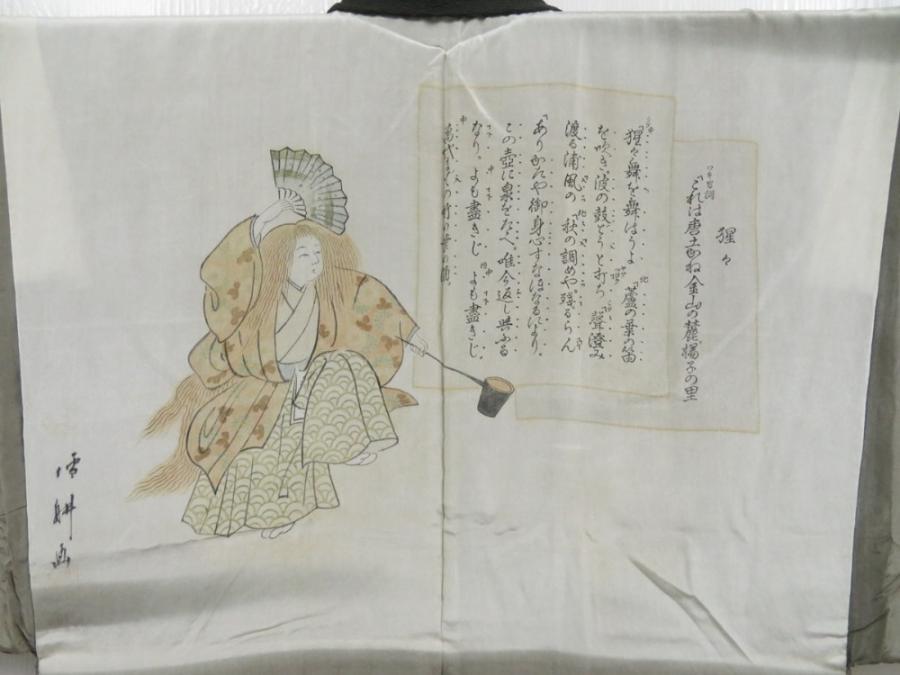 猩々
これは唐土かね金山の麓。揚子の里
「猩々舞を舞はうよ 地「蘆の葉の笛
を吹き、波の鼓どうと打ち、「聲澄み
渡る浦風の 地「秋の調めや殘るらん
「ありがたや御身心すなほなるにより。
この壺に泉をたゝへ。唯今返し與ふる
なり。よも盡きじ よも盡きじ
萬代までの竹の葉の酒。
耕画